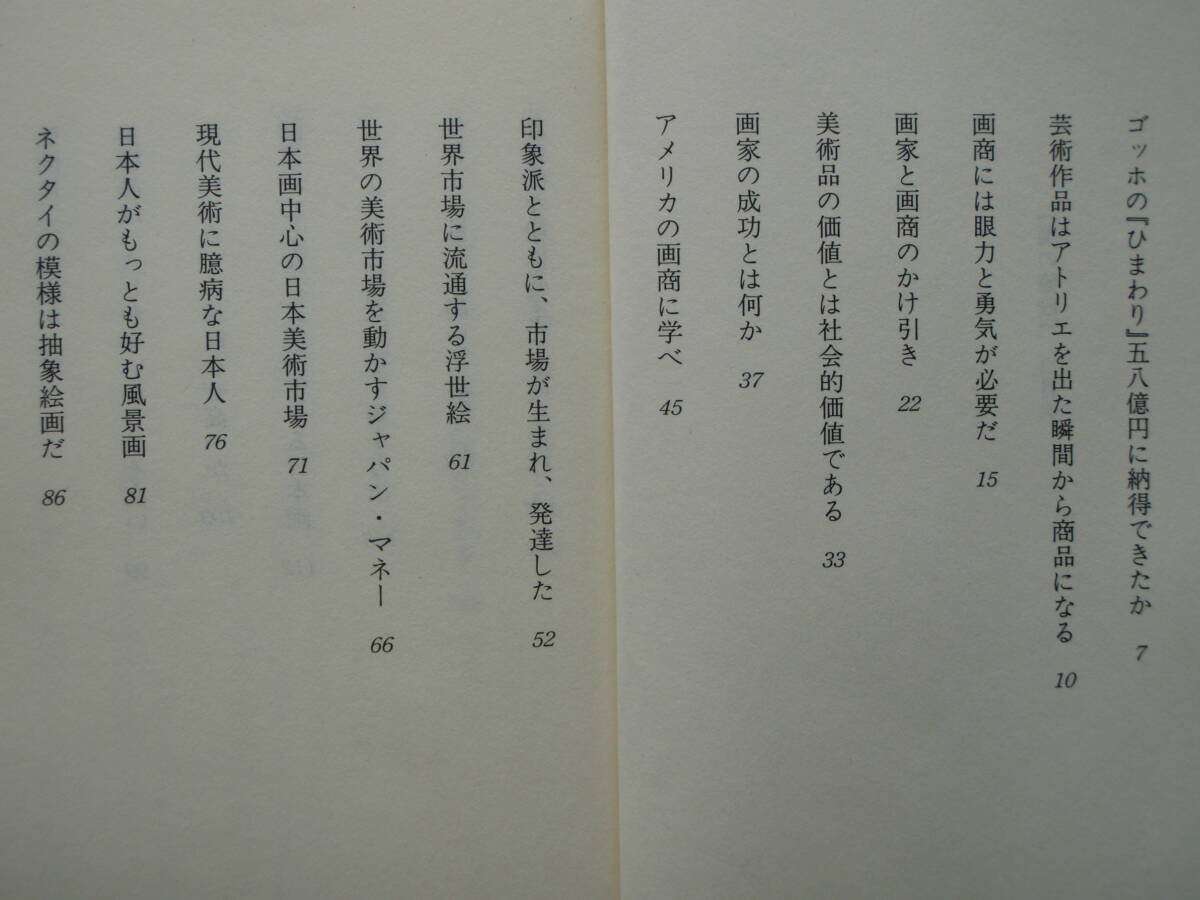 ゴッホの『ひまわり』五八億円に納得できたか 7
芸術作品はアトリエを出た瞬間から商品になる 10
画商には眼力と勇気が必要だ 15
画家と画商のかけ引き 22
美術品の価値とは社会的価値である 33
画家の成功とは何か 37
アメリカの画商に学べ 45
印象派とともに、市場が生まれ、発達した 52
世界市場に流通する浮世絵 61
世界の美術市場を動かすジャパン・マネー 66
日本画中心の日本美術市場 71
現代美術に臆病な日本人 76
日本人がもっとも好む風景画 81
ネクタイの模様は抽象絵画だ 86